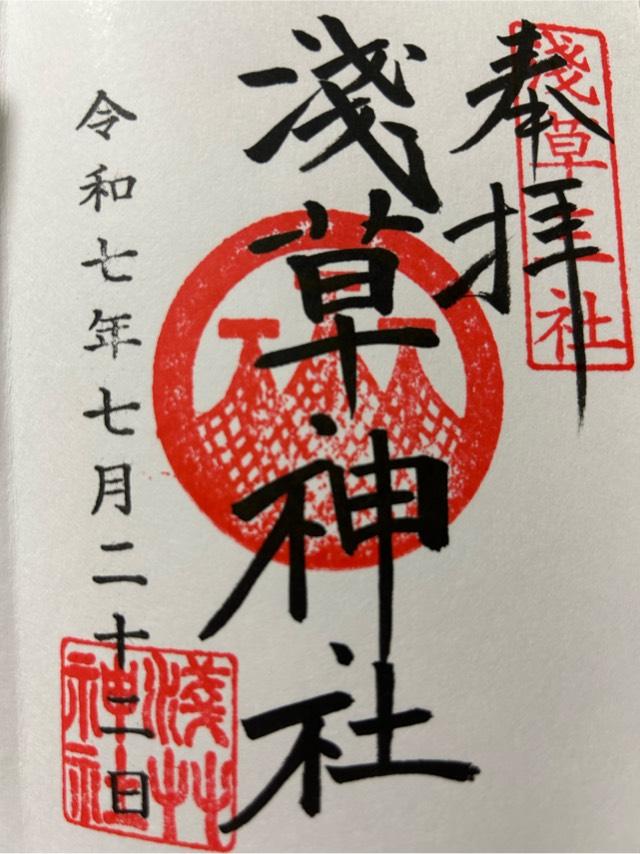 奉拝
淺草三社
淺草神社
令和七年七月二十二日
淺艸
神社